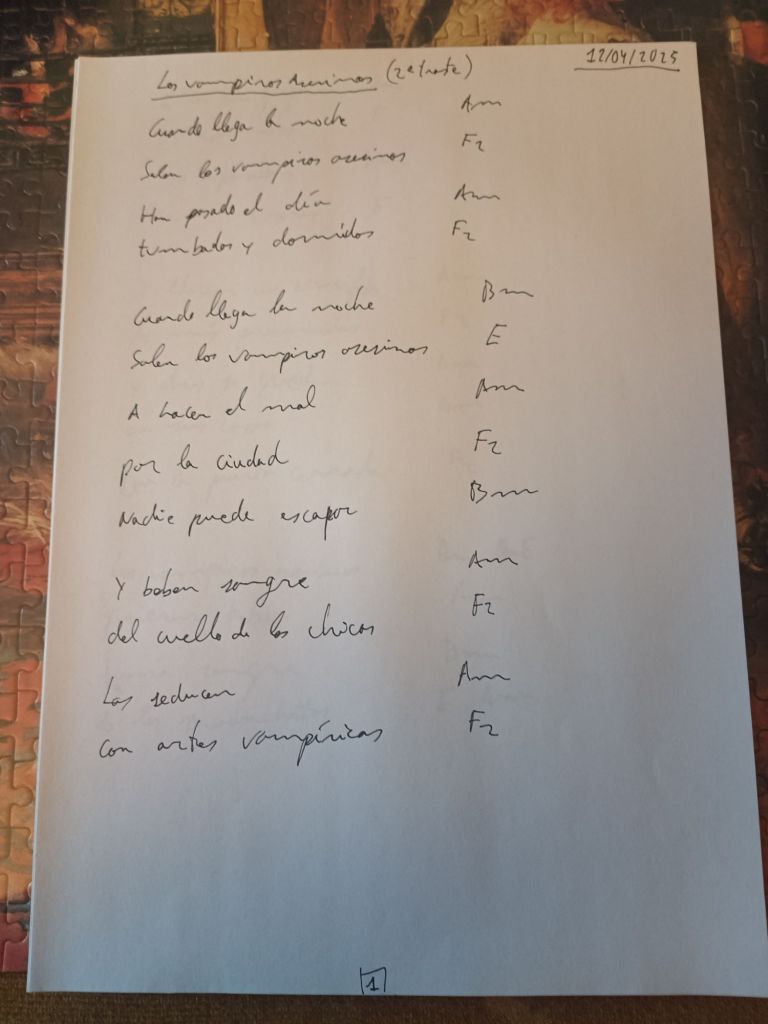 Los vampiros asesinos (2º traste) 12/04/2025
Cuando llega la noche Am
Salen los vampiros asesinos F2
Han pasado el día Am
tumbados y dormidos F2
Cuando llega la noche Bm
Salen los vampiros asesinos E
A hacer el mal Am
por la ciudad F2
Nadie puede escapar Bm
Y beben sangre Am
del cuello de las chicas F2
Las seducen Am
con artes vampíricas F2
1